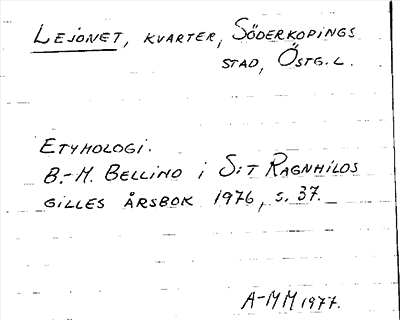 LEJONET, KVARTER, SÖDERKÖPINGS
STAD, ÖSTG.L.
ETYMOLOGI.
B.-M. BELLIND i S:T RAGNHILDS
GILLES ÅRSBOK 1976, s. 37.
A-MM 1977.